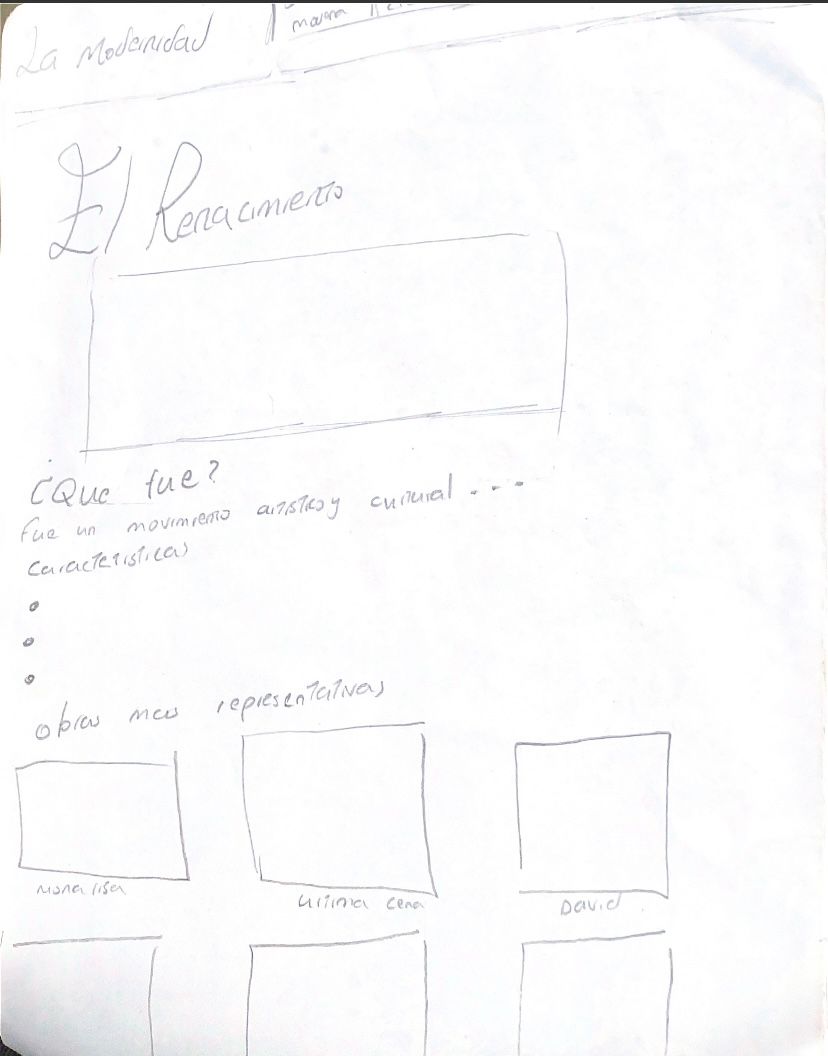 La Modernidad
El Renacimiento
¿Que fue?
Fue un movimiento artistico y cultural ...
Caracteristicas
•
•
•
obras mas representativas
Mona lisa
Ultima cena
David